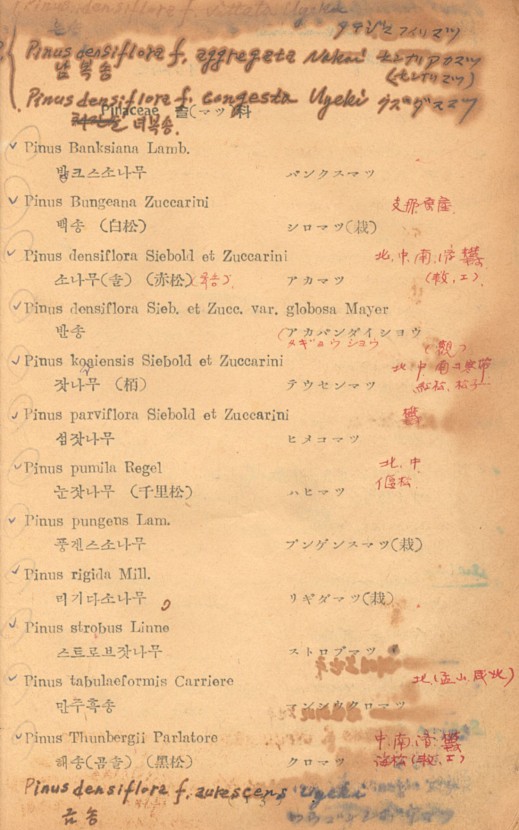 Pinus densiflora f. vittata Uyeki
Pinus densiflora f. aggregata Nakai
남복송
Pinus densiflora f. congesta Uyeki
Pinaceae 솔(マツ)科
여복송
Pinus Banksiana Lamb.
뱅크스소나무 バンクスマツ
Pinus Bungeana Zuccarini
백송 (白松) シロマツ(栽)
Pinus densiflora Siebold et Zuccarini 北, 中, 南, 濟, 鬱
소나무(솔) (赤松) アカマツ
Pinus densiflora Sieb. et Zucc. var. globosa Mayer
반송 (アカバンダイショウ
Pinus koaiensis Siebold et Zuccarini (觀)
잣나무 (栢) テウセンマツ
Pinus parviflora Siebold et Zuccarini 鬱
섬잣나무 ヒメコマツ
Pinus pumila Regel 北, 中
눈잣나무 (千里松) ハヒマツ 偃松
Pinus pungens Lam.
풍겐스소나무 プンゲンスマツ(栽)
Pinus rigida Mill.
리기다소나무 リギダマツ(栽)
Pinus strobus Linne
스트로브잣나무 ストロブマツ
Pinus tabulaeformis Carriere
만주흑송 マンシウクロマツ
Pinus Thunbergii Parlatore 中, 南, 濟, 鬱
해송(곰솔) (黒松) クロマツ 海松
Pinus densiflora f. aurescens Uyeki
금송